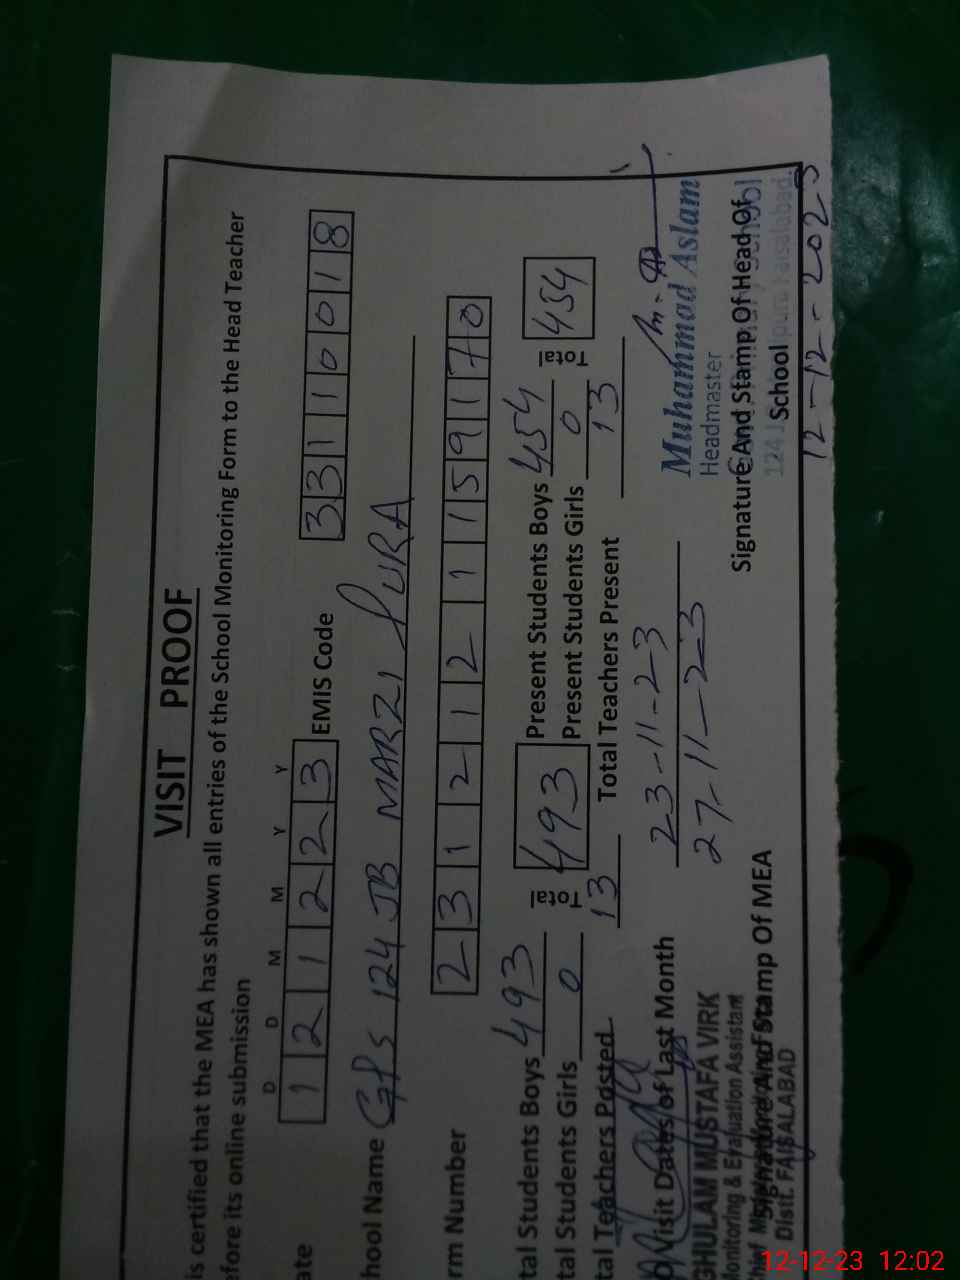 VISIT PROOF
is certified that the MEA has shown all entries of the School Monitoring Form to the Head Teacher
efore its online submission
D D M M Y Y
ate 1 2 1 2 2 3 EMIS Code 3 3 1 1 0 0 1 8
hool Name GPS 124 JB MARZI PURA
rm Number 2 3 1 2 1 2 1 1 5 9 1 7 0
tal Students Boys 493 Total 493 Present Students Boys 454 Total 454
tal Students Girls 0 Present Students Girls 0
tal Teachers Posted 13 Total Teachers Present 13
Visit Dates of Last Month 23-11-23
27-11-23
GHULAM MUSTAFA VIRK
onitoring & Evaluation Assistant
Signature And Stamp Of MEA
Distt. FAISALABAD
Muhammad Aslam
Headmaster
Signature And Stamp Of Head Of
School
12-12-2023
12-12-23 12:02